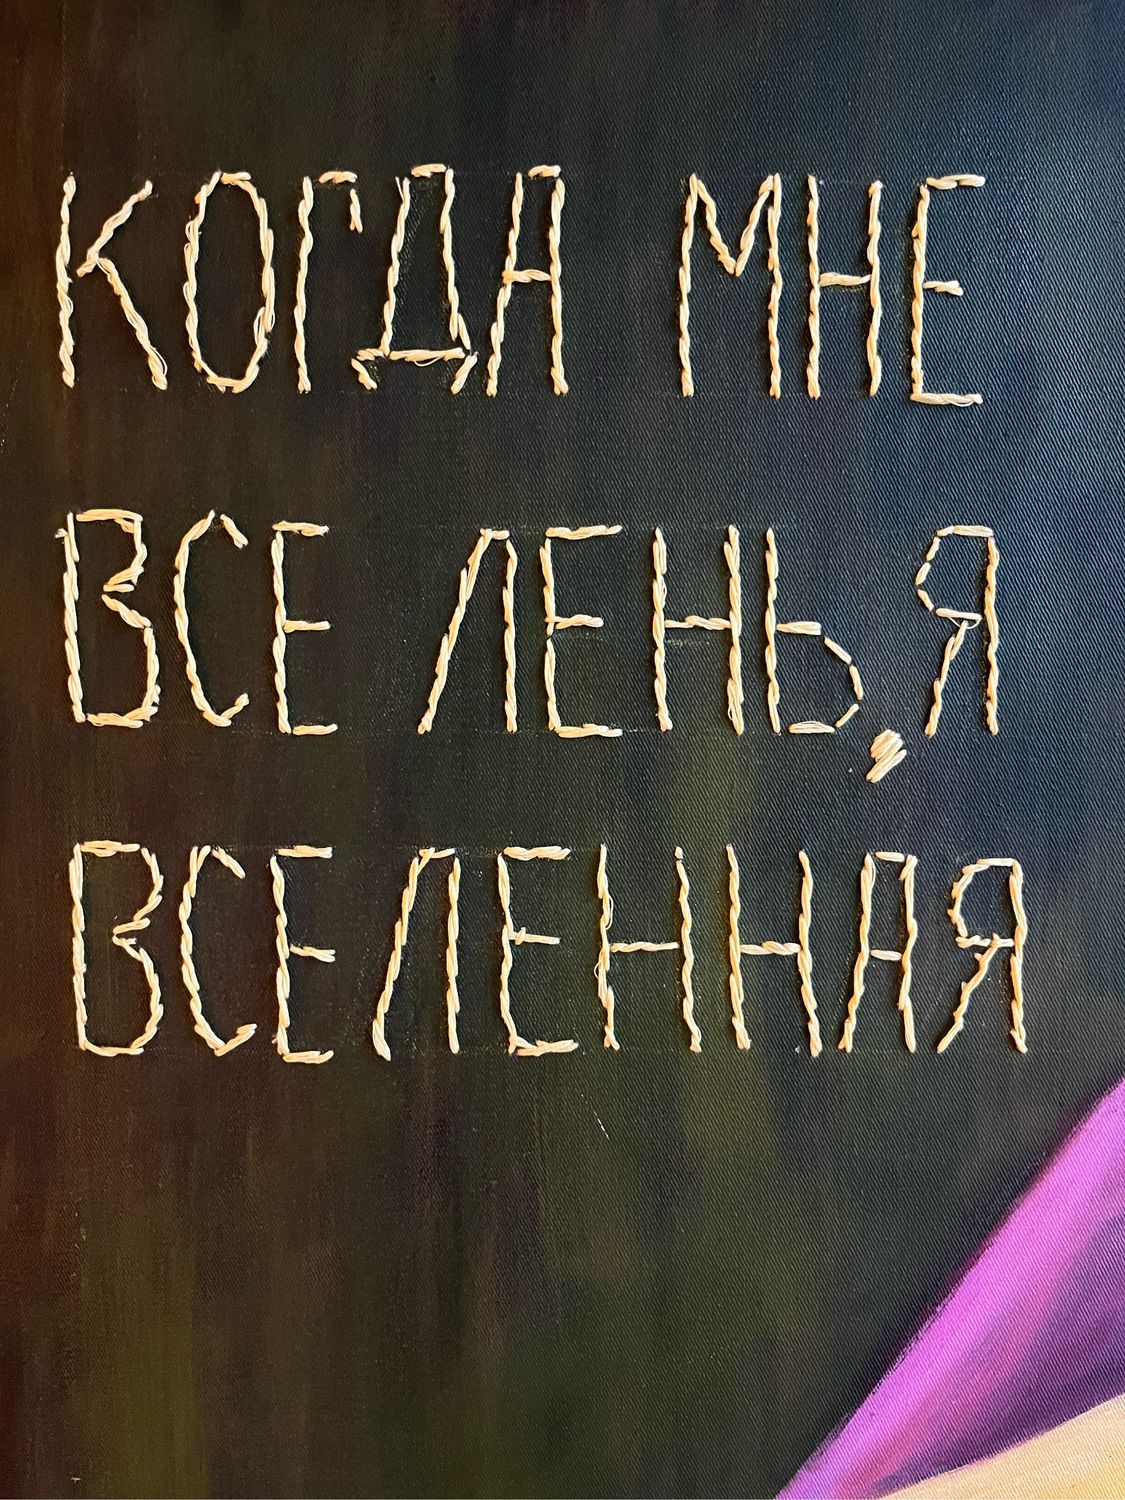 КОГДА МНЕ
ВСЕ ЛЕНЬ,Я
ВСЕЛЕННАЯ